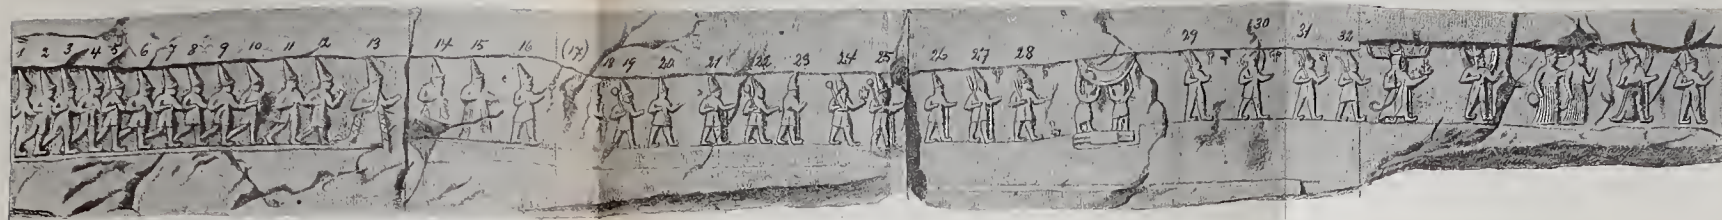 1 2 3 4 5 6 7 8 9 10 11 12 13 14 15 16 (17) 18 19 20 21 22 23 24 25 26 27 28 29 30 31 32